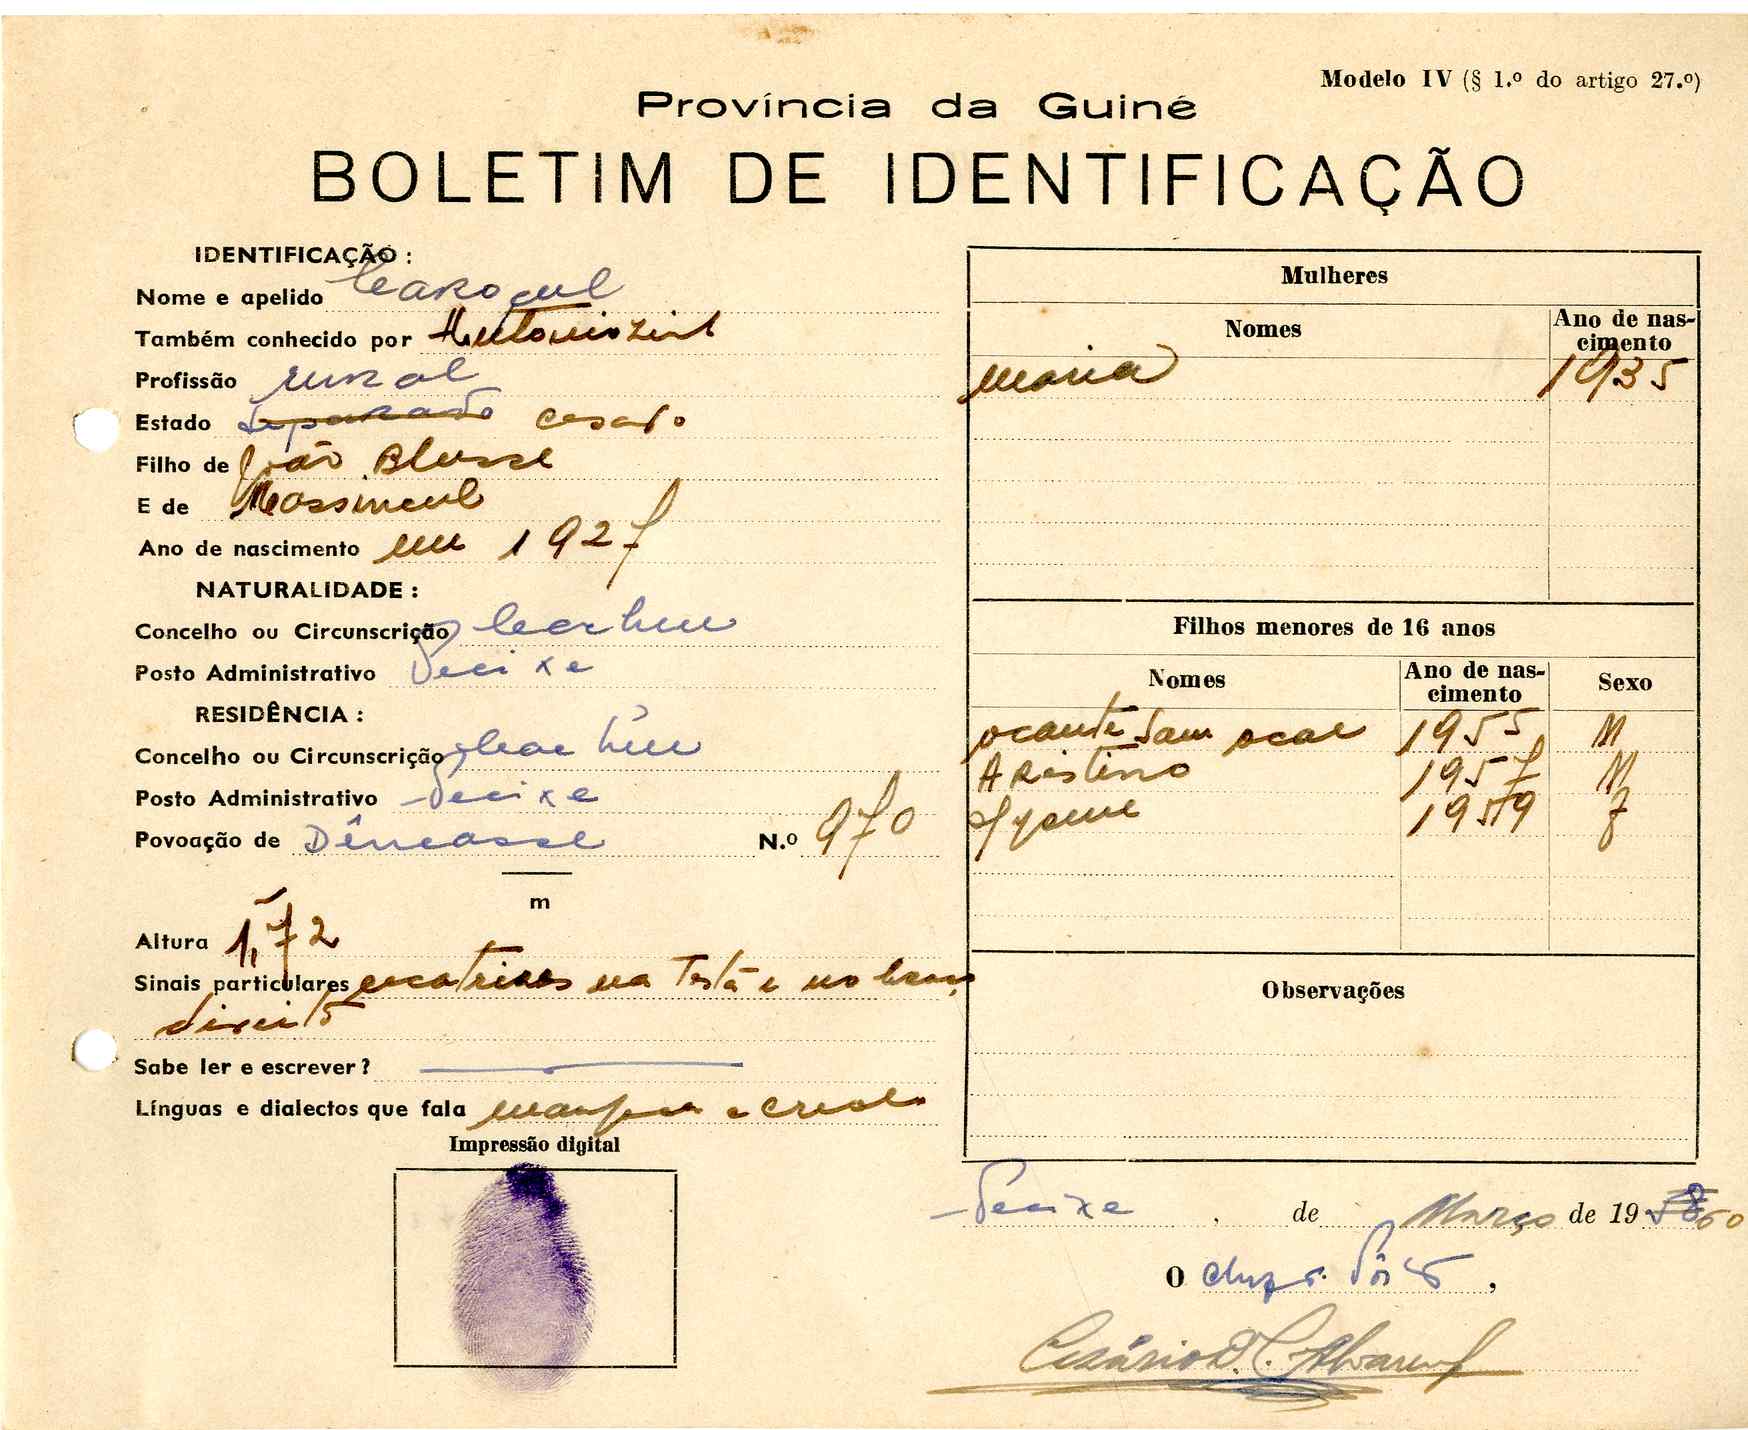 Modelo IV (§ 1.º do artigo 27.º)
Província da Guiné
BOLETIM DE IDENTIFICAÇÃO
IDENTIFICAÇÃO :
Nome e apelido
Também conhecido por
Profissão rural
Estado Separado casado
Filho de João Blusse
E de
Ano de nascimento em 1927
NATURALIDADE :
Concelho ou Circunscrição
Posto Administrativo Pecixe
RESIDÊNCIA :
Concelho ou Circunscrição
Posto Administrativo Pecixe
Povoação de N.º 970
m
Altura 1,72
Sinais particulares cicatrizes na testa e no braço
direito
Sabe ler e escrever?
Línguas e dialectos que fala e creolo
Impressão digital
Mulheres
Nomes Ano de nas-
cimento
Maria 1935
Filhos menores de 16 anos
Nomes Ano de nas-
cimento Sexo
1955 M
Aristino 1957 M
1959 F
Observações
Pecixe, de Março de 1960
O Chefe de Pôsto,
Cesário D. C. Alvarenga